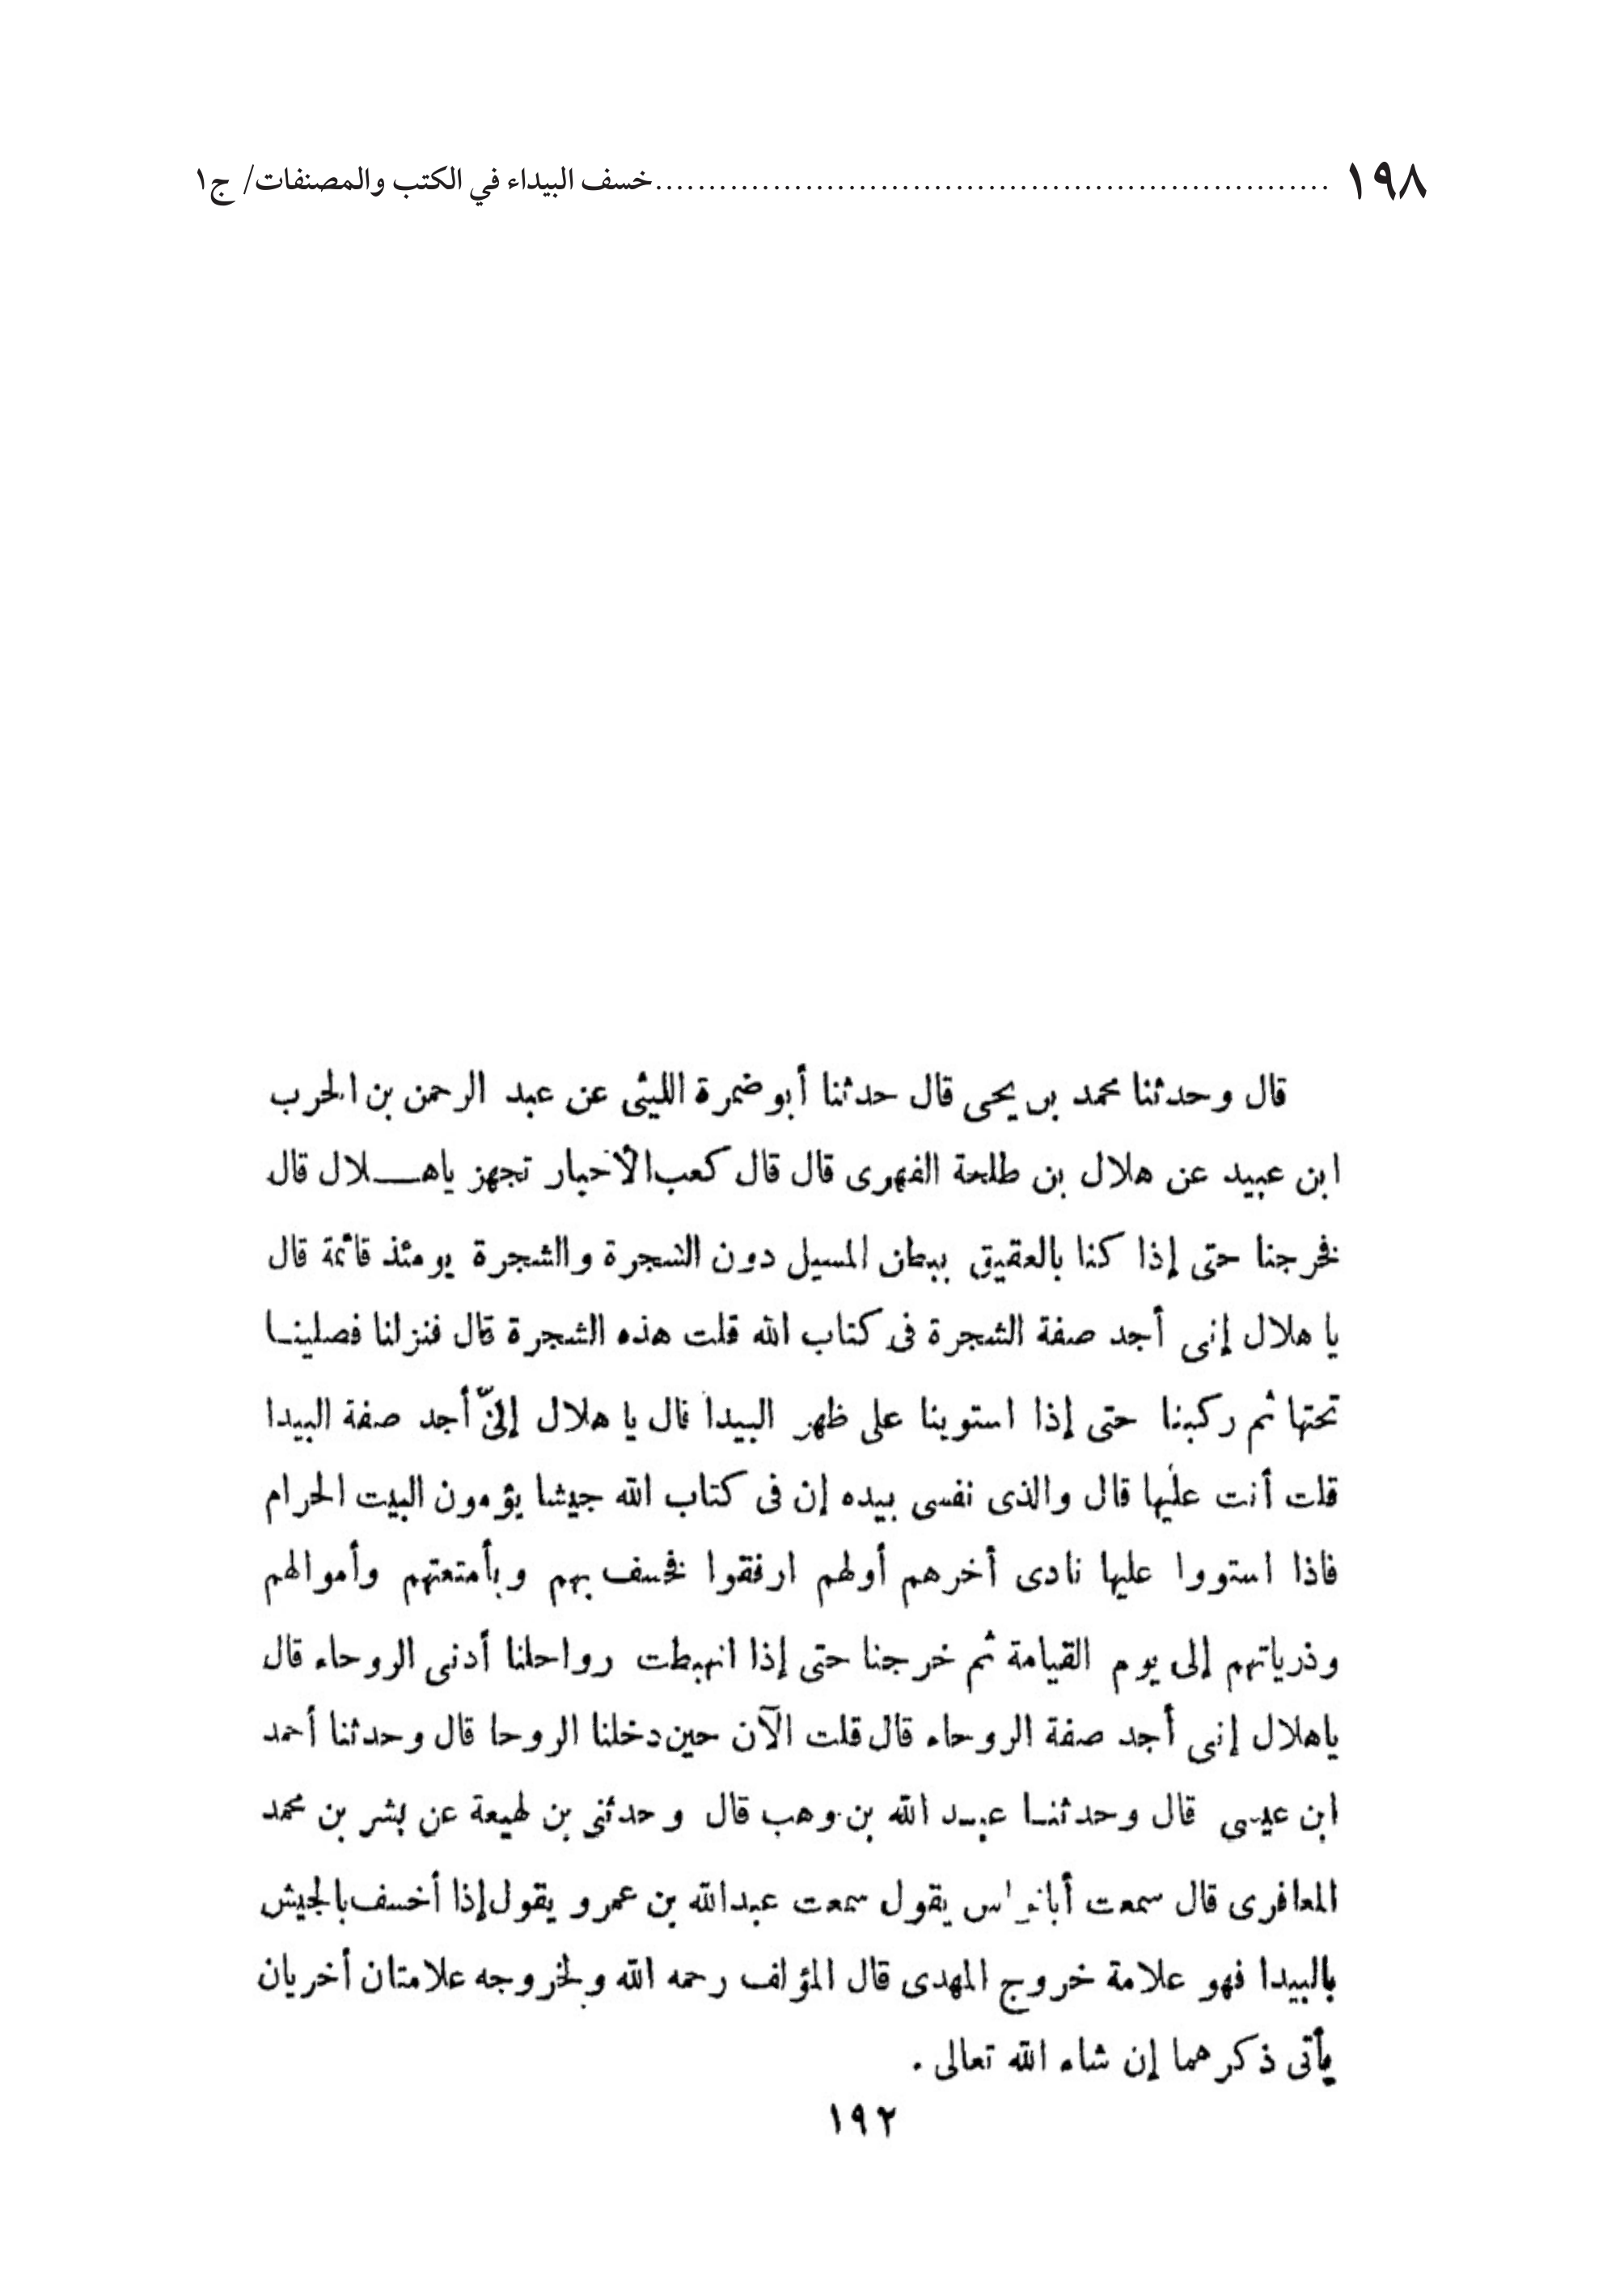 ١٩٨ ................................................................خسف البيداء في الكتب والمصنفات/ ج١
قال وحدثنا محمد بن يحيى قال حدثنا أبو ضمرة الليثى عن عبد الرحمن بن الحرب
ابن عبيد عن هلال بن طلحة الفهرى قال قال كعب الأخبار تجهز ياهـــلال قال
فخرجنا حتى إذا كنا بالعقيق ببطن المسيل دون الشجرة والشجرة يومئذ قائمة قال
يا هلال إنى أجد صفة الشجرة فى كتاب الله قلت هذه الشجرة قال فنزلنا فصلينـا
تحتها ثم ركبنا حتى إذا استوينا على ظهر البيدا قال يا هلال إنىّ أجد صفة البيدا
قلت أنت عليها قال والذى نفسى بيده إن فى كتاب الله جيشا يؤمون البيت الحرام
فاذا استووا عليها نادى أخرهم أولهم ارفقوا فخسف بهم وبأمتعتهم وأموالهم
وذرياتهم إلى يوم القيامة ثم خرجنا حتى إذا انهبطت رواحلنا أدنى الروحاء قال
ياهلال إنى أجد صفة الروحاء قال قلت الآن حين دخلنا الروحا قال وحدثنا أحمد
ابن عيسى قال وحدثنـا عبـد الله بن وهب قال وحدثنى بن لهيعة عن بشر بن محمد
المعافرى قال سمعت يقول سمعت عبدالله بن عمرو يقول إذا أخسف بالجيش
بالبيدا فهو علامة خروج المهدى قال المؤلف رحمه الله ولخروجه علامتان أخريان
يأتى ذكرهما إن شاء الله تعالى .
١٩٢